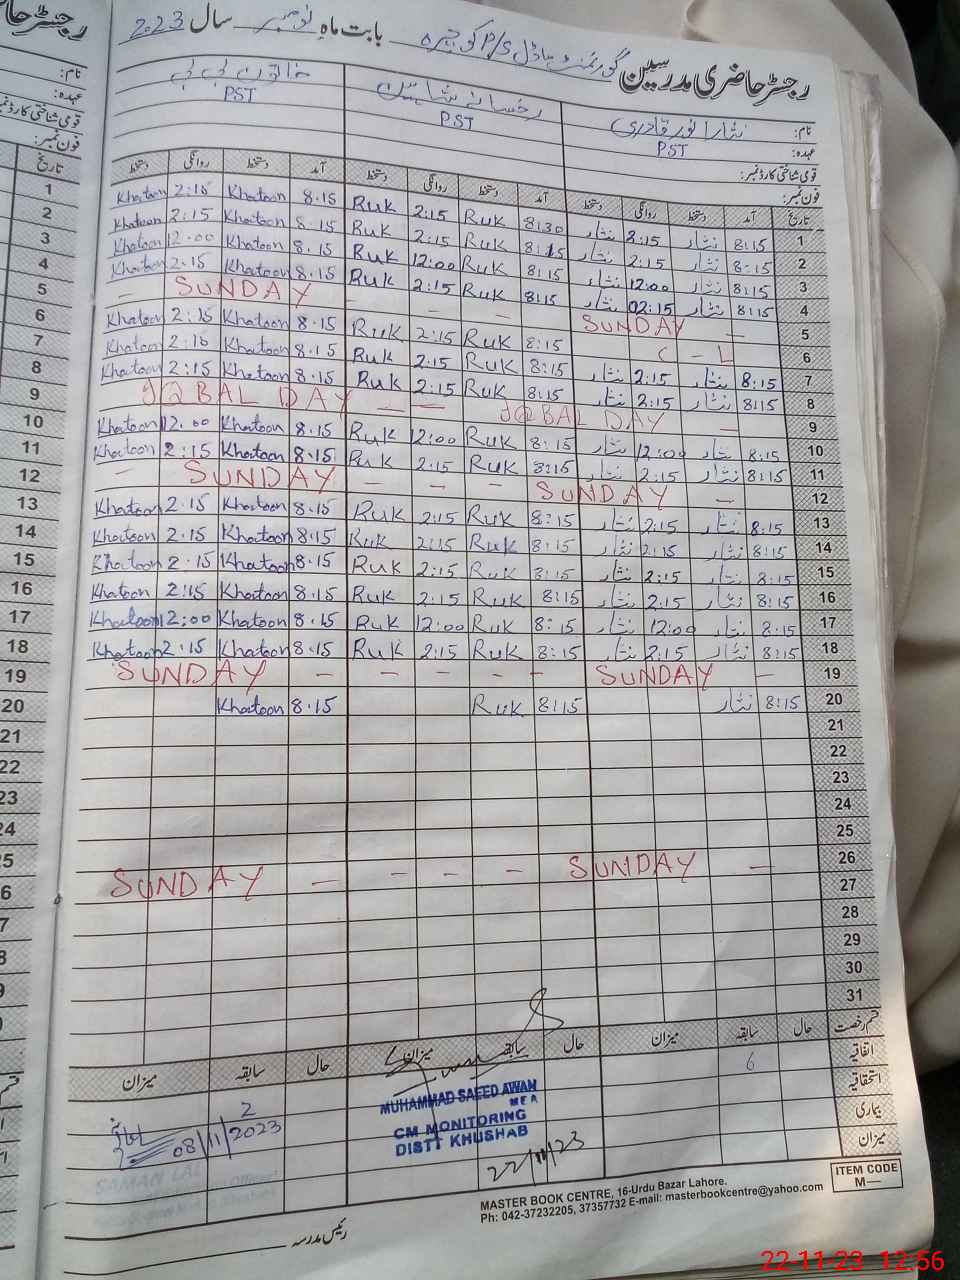 رجسٹر حاضری مدرسین گورنمنٹ ماڈل P/S بابت ماہ نومبر سال 2023
نام: نثار انور قادری رخسانہ شاہین خاتون بی بی
عہدہ: PST PST PST
قومی شناختی کارڈ نمبر:
فون نمبر:
تاریخ آمد دستخط روانگی دستخط آمد دستخط روانگی دستخط آمد دستخط روانگی دستخط
1 8:15 نثار 2:15 نثار 8:30 Ruk 2:15 Ruk 8.15 Khatoon 2:15 Khatoon
2 8:15 نثار 2:15 نثار 8:15 Ruk 2:15 Ruk 8.15 Khatoon 2:15 Khatoon
3 8:15 نثار 12:00 نثار 8:15 Ruk 12:00 Ruk 8.15 Khatoon 12.00 Khatoon
4 8:15 نثار 02:15 نثار 8:15 Ruk 2:15 Ruk 8.15 Khatoon 2.15 Khatoon
5 SUNDAY - - - SUNDAY -
6 C - L 8:15 Ruk 2:15 Ruk 8.15 Khatoon 2:15 Khatoon
7 8:15 نثار 2:15 نثار 8:15 Ruk 2:15 Ruk 8.15 Khatoon Khatoon
8 8:15 نثار 2:15 نثار 8:15 Ruk 2:15 Ruk 8.15 Khatoon 2:15 Khatoon
9 IQBAL DAY - IQBAL DAY - -
10 8:15 نثار 12:00 نثار 8:15 Ruk 12:00 Ruk 8.15 Khatoon 12.00 Khatoon
11 8:15 نثار 2:15 نثار 8:15 Ruk 2:15 Ruk 8.15 Khatoon 2:15 Khatoon
12 SUNDAY - SUNDAY - - - -
13 8:15 نثار 2:15 نثار 8:15 Ruk 2:15 Ruk 8.15 Khatoon 2.15 Khatoon
14 8:15 نثار 2:15 نثار 8:15 Ruk 2:15 Ruk 8.15 Khatoon 2.15 Khatoon
15 8:15 نثار 2:15 نثار 8:15 Ruk 2:15 Ruk 8.15 Khatoon 2.15 Khatoon
16 8:15 نثار 2:15 نثار 8:15 Ruk 2:15 Ruk 8.15 Khatoon 2:15 Khatoon
17 8:15 نثار 12:00 نثار 8:15 Ruk 12:00 Ruk 8.15 Khatoon 12:00 Khatoon
18 8:15 نثار 2:15 نثار 8:15 Ruk 2:15 Ruk 8.15 Khatoon 2.15 Khatoon
19 SUNDAY - SUNDAY - - - - -
20 8:15 نثار 8:15 Ruk 8.15 Khatoon
21
22
23
24
25
26 SUNDAY - SUNDAY - - - -
27
28
29
30
31
قسم رخصت حال سابقہ میزان حال سابقہ میزان حال سابقہ میزان
اتفاقیہ 6
استحقاقیہ 2
بیماری
میزان
08/11/2023
MUHAMMAD SAEED AWAN
MEA
CM MONITORING
DISTT KHUSHAB
22/11/23
SAMAN LAL
رئیس مدرسہ
MASTER BOOK CENTRE, 16-Urdu Bazar Lahore.
Ph: 042-37232205, 37357732 E-mail: masterbookcentre@yahoo.com
ITEM CODE
M—
22-11-23 12:56